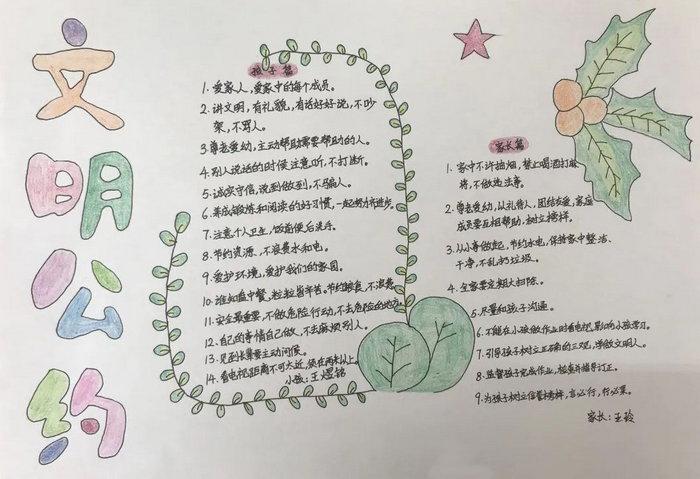 文明公约
孩子篇
1. 爱家人，爱家中的每个成员。
2. 讲文明，有礼貌，有话好好说，不吵
架，不骂人。
3. 尊老爱幼，主动帮助需要帮助的人。
4. 别人说话的时候注意听，不打断。
5. 诚实守信，说到做到，不骗人。
6. 养成锻炼和阅读的好习惯，一起努力求进步。
7. 注意个人卫生，饭前便后洗手。
8. 节约资源，不浪费水和电。
9. 爱护环境，爱护我们的家园。
10. 谁知盘中餐，粒粒皆辛苦。节约粮食，不浪费。
11. 安全最重要，不做危险行动，不去危险的地方。
12. 自己的事情自己做，不去麻烦别人。
13. 见到长辈要主动问候。
14. 看电视距离不可太近，须在两米以上。
小孩：王煜铭
家长篇
1. 家中不许抽烟，禁止喝酒打麻
将，不做违法事。
2. 尊老爱幼，以礼待人，团结友爱，家庭
成员要互相帮助，树立榜样。
3. 从小事做起，节约水电，保持家中整洁、
干净，不乱扔垃圾。
4. 全家要定期大扫除。
5. 尽量和孩子沟通。
6. 不能在小孩做作业时看电视，影响小孩学习。
7. 引导孩子树立正确的三观，争做文明人。
8. 监督孩子完成作业，检查并指导订正。
9. 为孩子树立信誉榜样，言必行，行必果。
家长：王玲